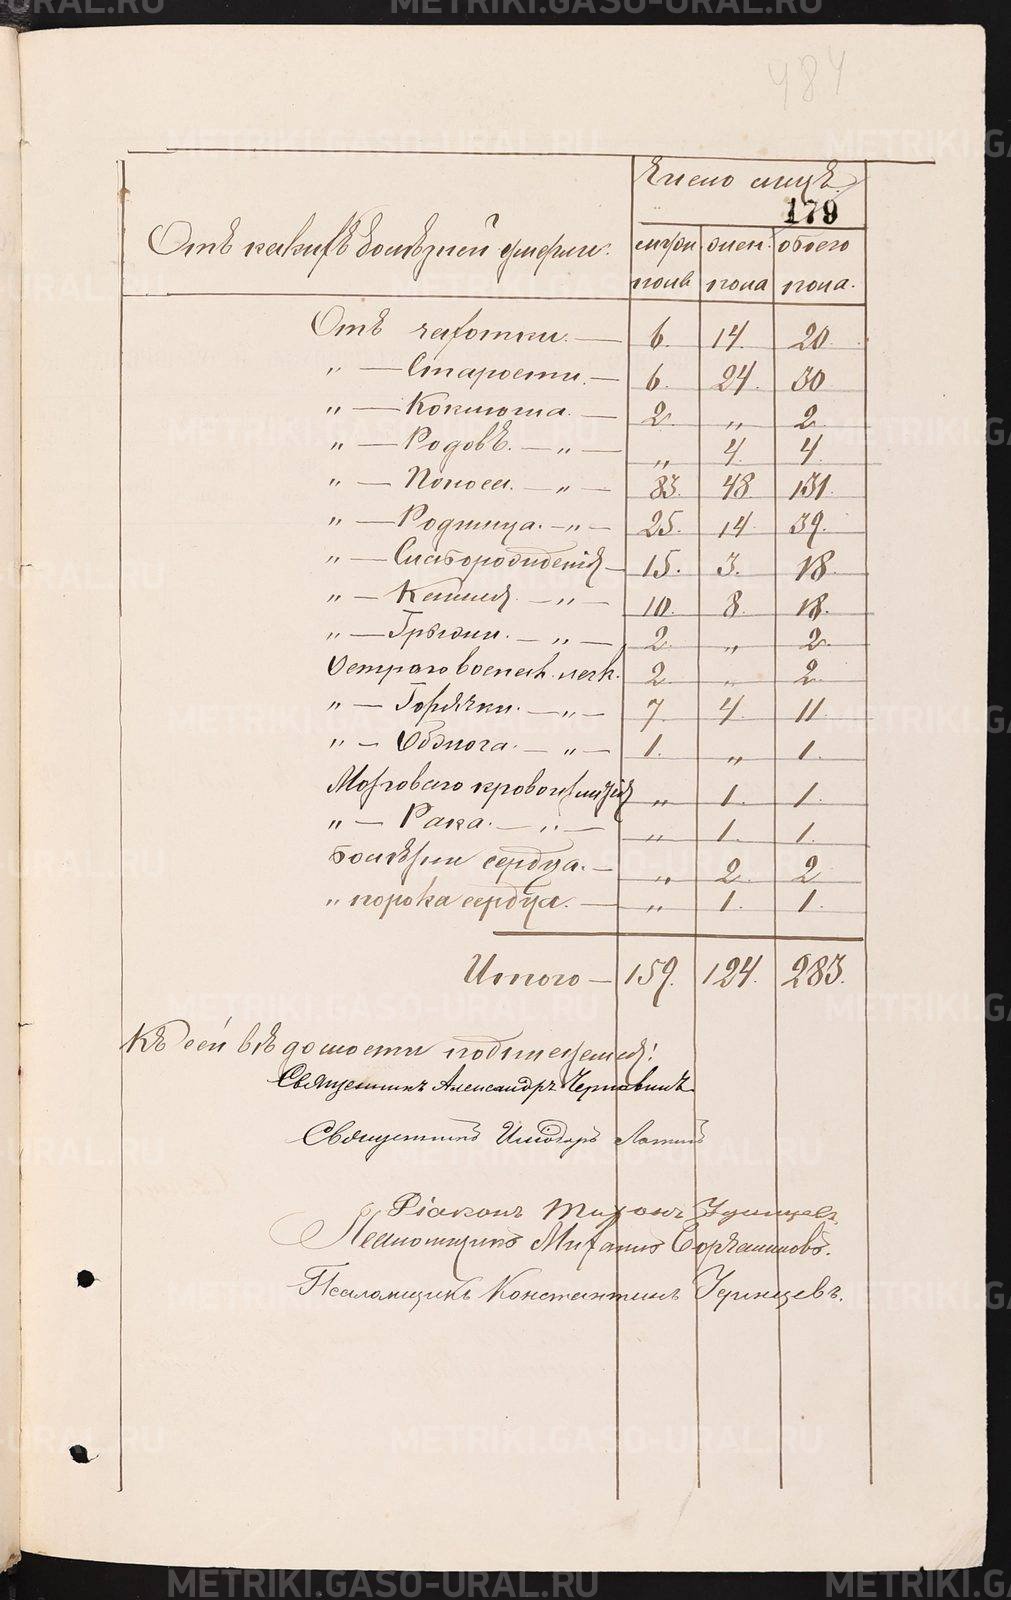 METRIKI.GASO-URAL.RU
484
Число лицъ.
179
Отъ какихъ болѣзней умерли.
мужи пола
жен. пола
обоего пола.
Отъ чахотки. — 6. 14. 20.
„ — Старости. — 6. 24. 30
„ — Коклюша. — 2. „ 2
„ — Родовъ. — „ — „ 4. 4.
„ — Поноса. — „ — 83. 48. 131.
„ — Родимца. — „ — 25. 14. 39.
„ — Слаборожденія — 15. 3. 18.
„ — Кашля. — „ — 10. 8. 18.
„ — Грыжи. — „ — 2. „ 2.
Остраго воспал. легк. 2. „ 2.
„ — Горячки. — „ — 7. 4. 11.
„ — Обжога. — „ — 1. „ 1.
Мозгового кровоизліянія „ 1. 1.
„ — Рака. — „ — „ 1. 1.
Болѣзни сердца. — „ 2. 2
„ порока сердца. — „ 1. 1.
Итого — 159. 124. 283.
Къ сей вѣдомости подписуемся:
Священникъ Александръ Чернавинъ
Священникъ Исидоръ
Діаконъ Тихонъ Удинцевъ
Псаломщикъ Михаилъ
Псаломщикъ Константинъ Удинцевъ.